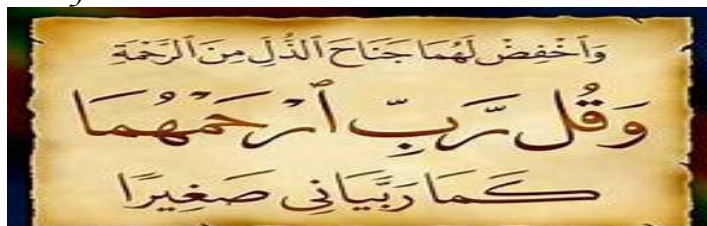 وَٱخْفِضْ لَهُمَا جَنَاحَ ٱلذُّلِّ مِنَ ٱلرَّحْمَةِ
وَقُل رَّبِّ ٱرْحَمْهُمَا
كَمَا رَبَّيَانِى صَغِيرًا